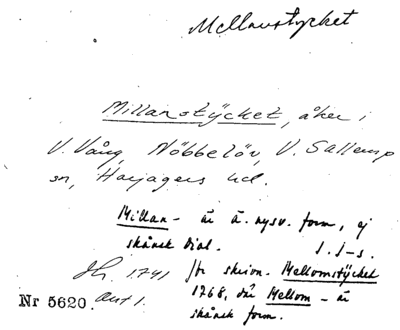 Mellanstycket
Millanstÿcket, åker i
V. Vång, Nöbbelöv, V. Sallerup
sn, Harjagers hd.
Millan- är ä. nysv. form, ej
skånsk dial. I. I-s.
1741 Jfr skrivn. Mellomstÿcket
Nr 5620. Akt 1. 1768, där Mellom- är
skånsk form.